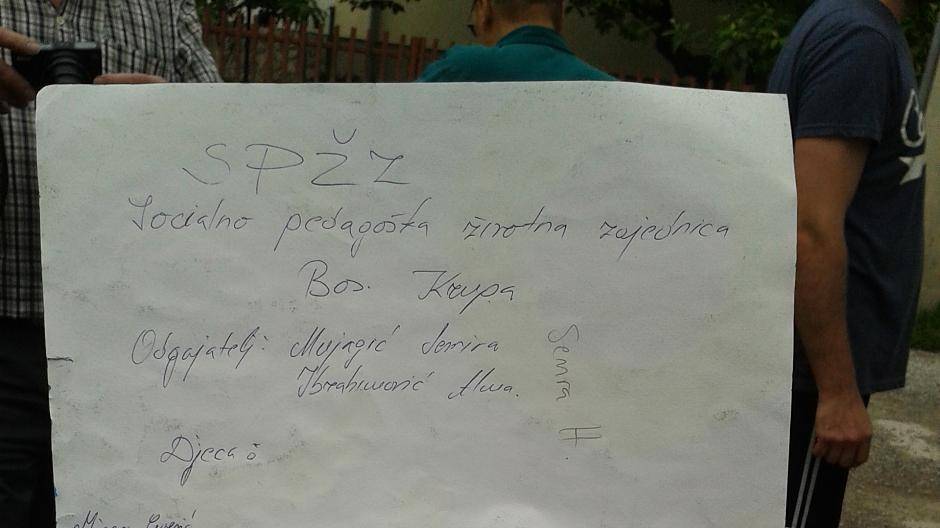 SPŽZ
Socialno pedagoška životna zajednica
Bos. Krupa
Odgajatelji: Mujagić Semira
Ibrahimović Alma.
Semra H.
Djeca: